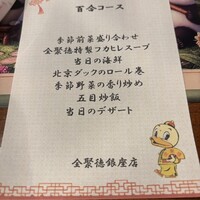 百合コース
季節前菜盛り合わせ
全聚徳特製フカヒレスープ
当日の海鮮
北京ダックのロール巻
季節野菜の香り炒め
五目炒飯
当日のデザート
全聚徳銀座店